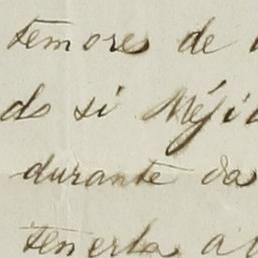 temores de
do si Méji
durante da
tenerla a